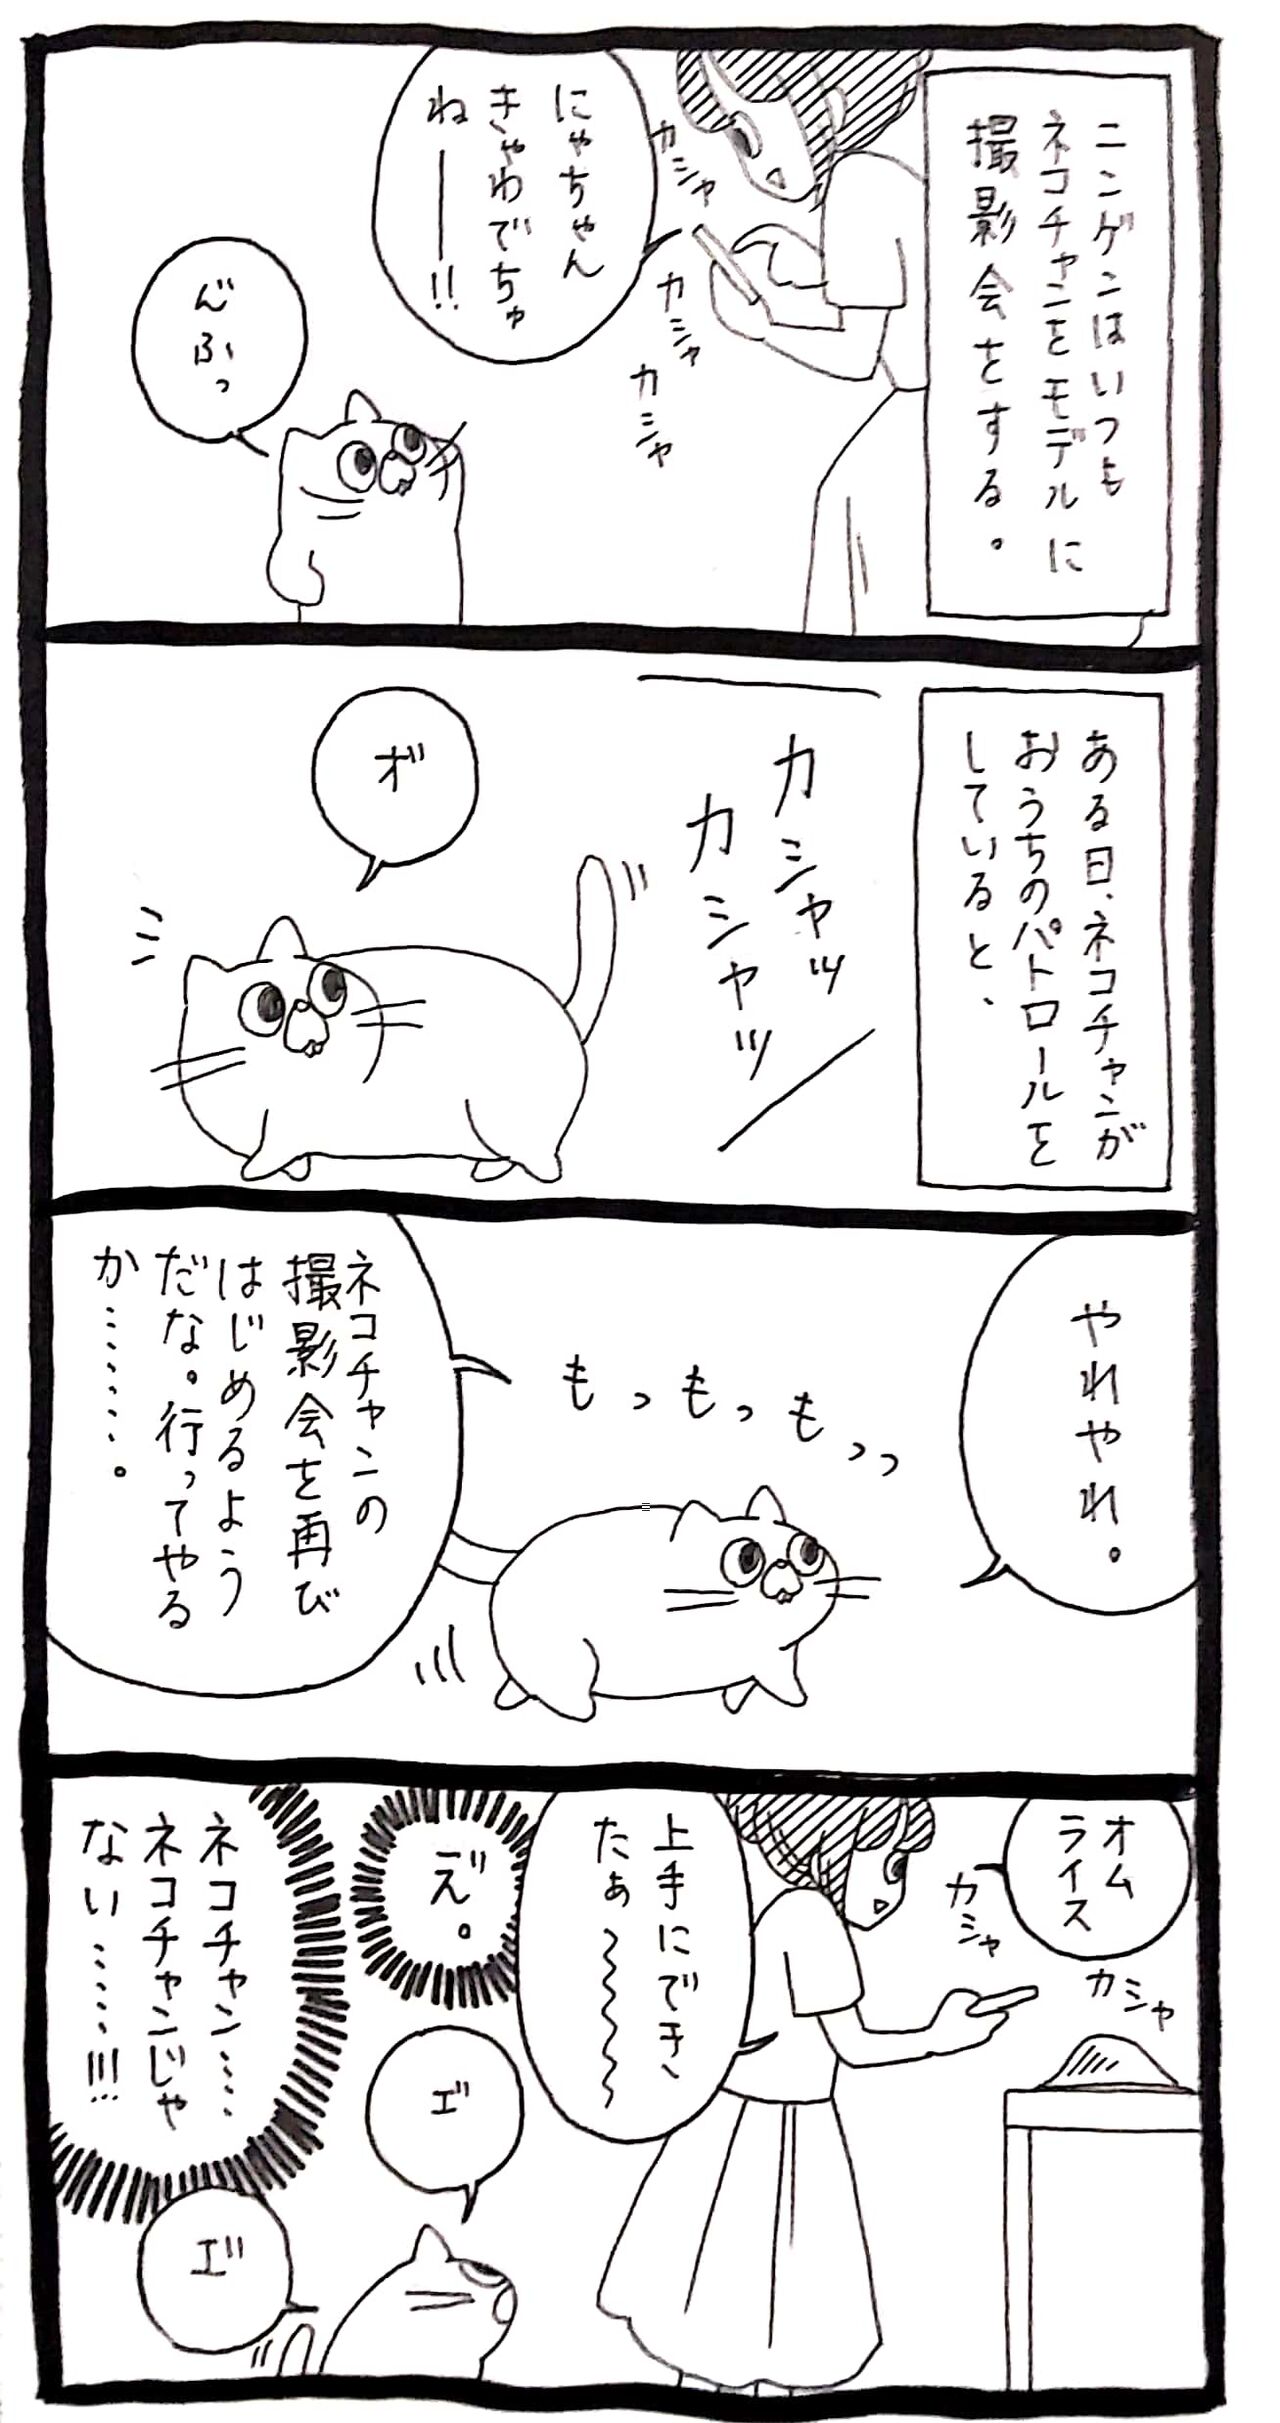 ニンゲンはいつも
ネコチャンをモデルに
撮影会をする。
カシャ
カシャ
カシャ
にゃちゃん
きゃわでちゅ
ね――!!
ん゛ふっ
ある日、ネコチャンが
おうちのパトロールを
していると、
カシャッ
カシャッ
オ゛
やれやれ。
もっもっもっっ
ネコチャンの
撮影会を再び
はじめるよう
だな。行ってやる
か……。
オム
ライス
カシャ
カシャ
上手にでき
たぁ〜〜〜〜
え゛。
エ゛
ネコチャン…
ネコチャンじゃ
ない……!!!
エ゛